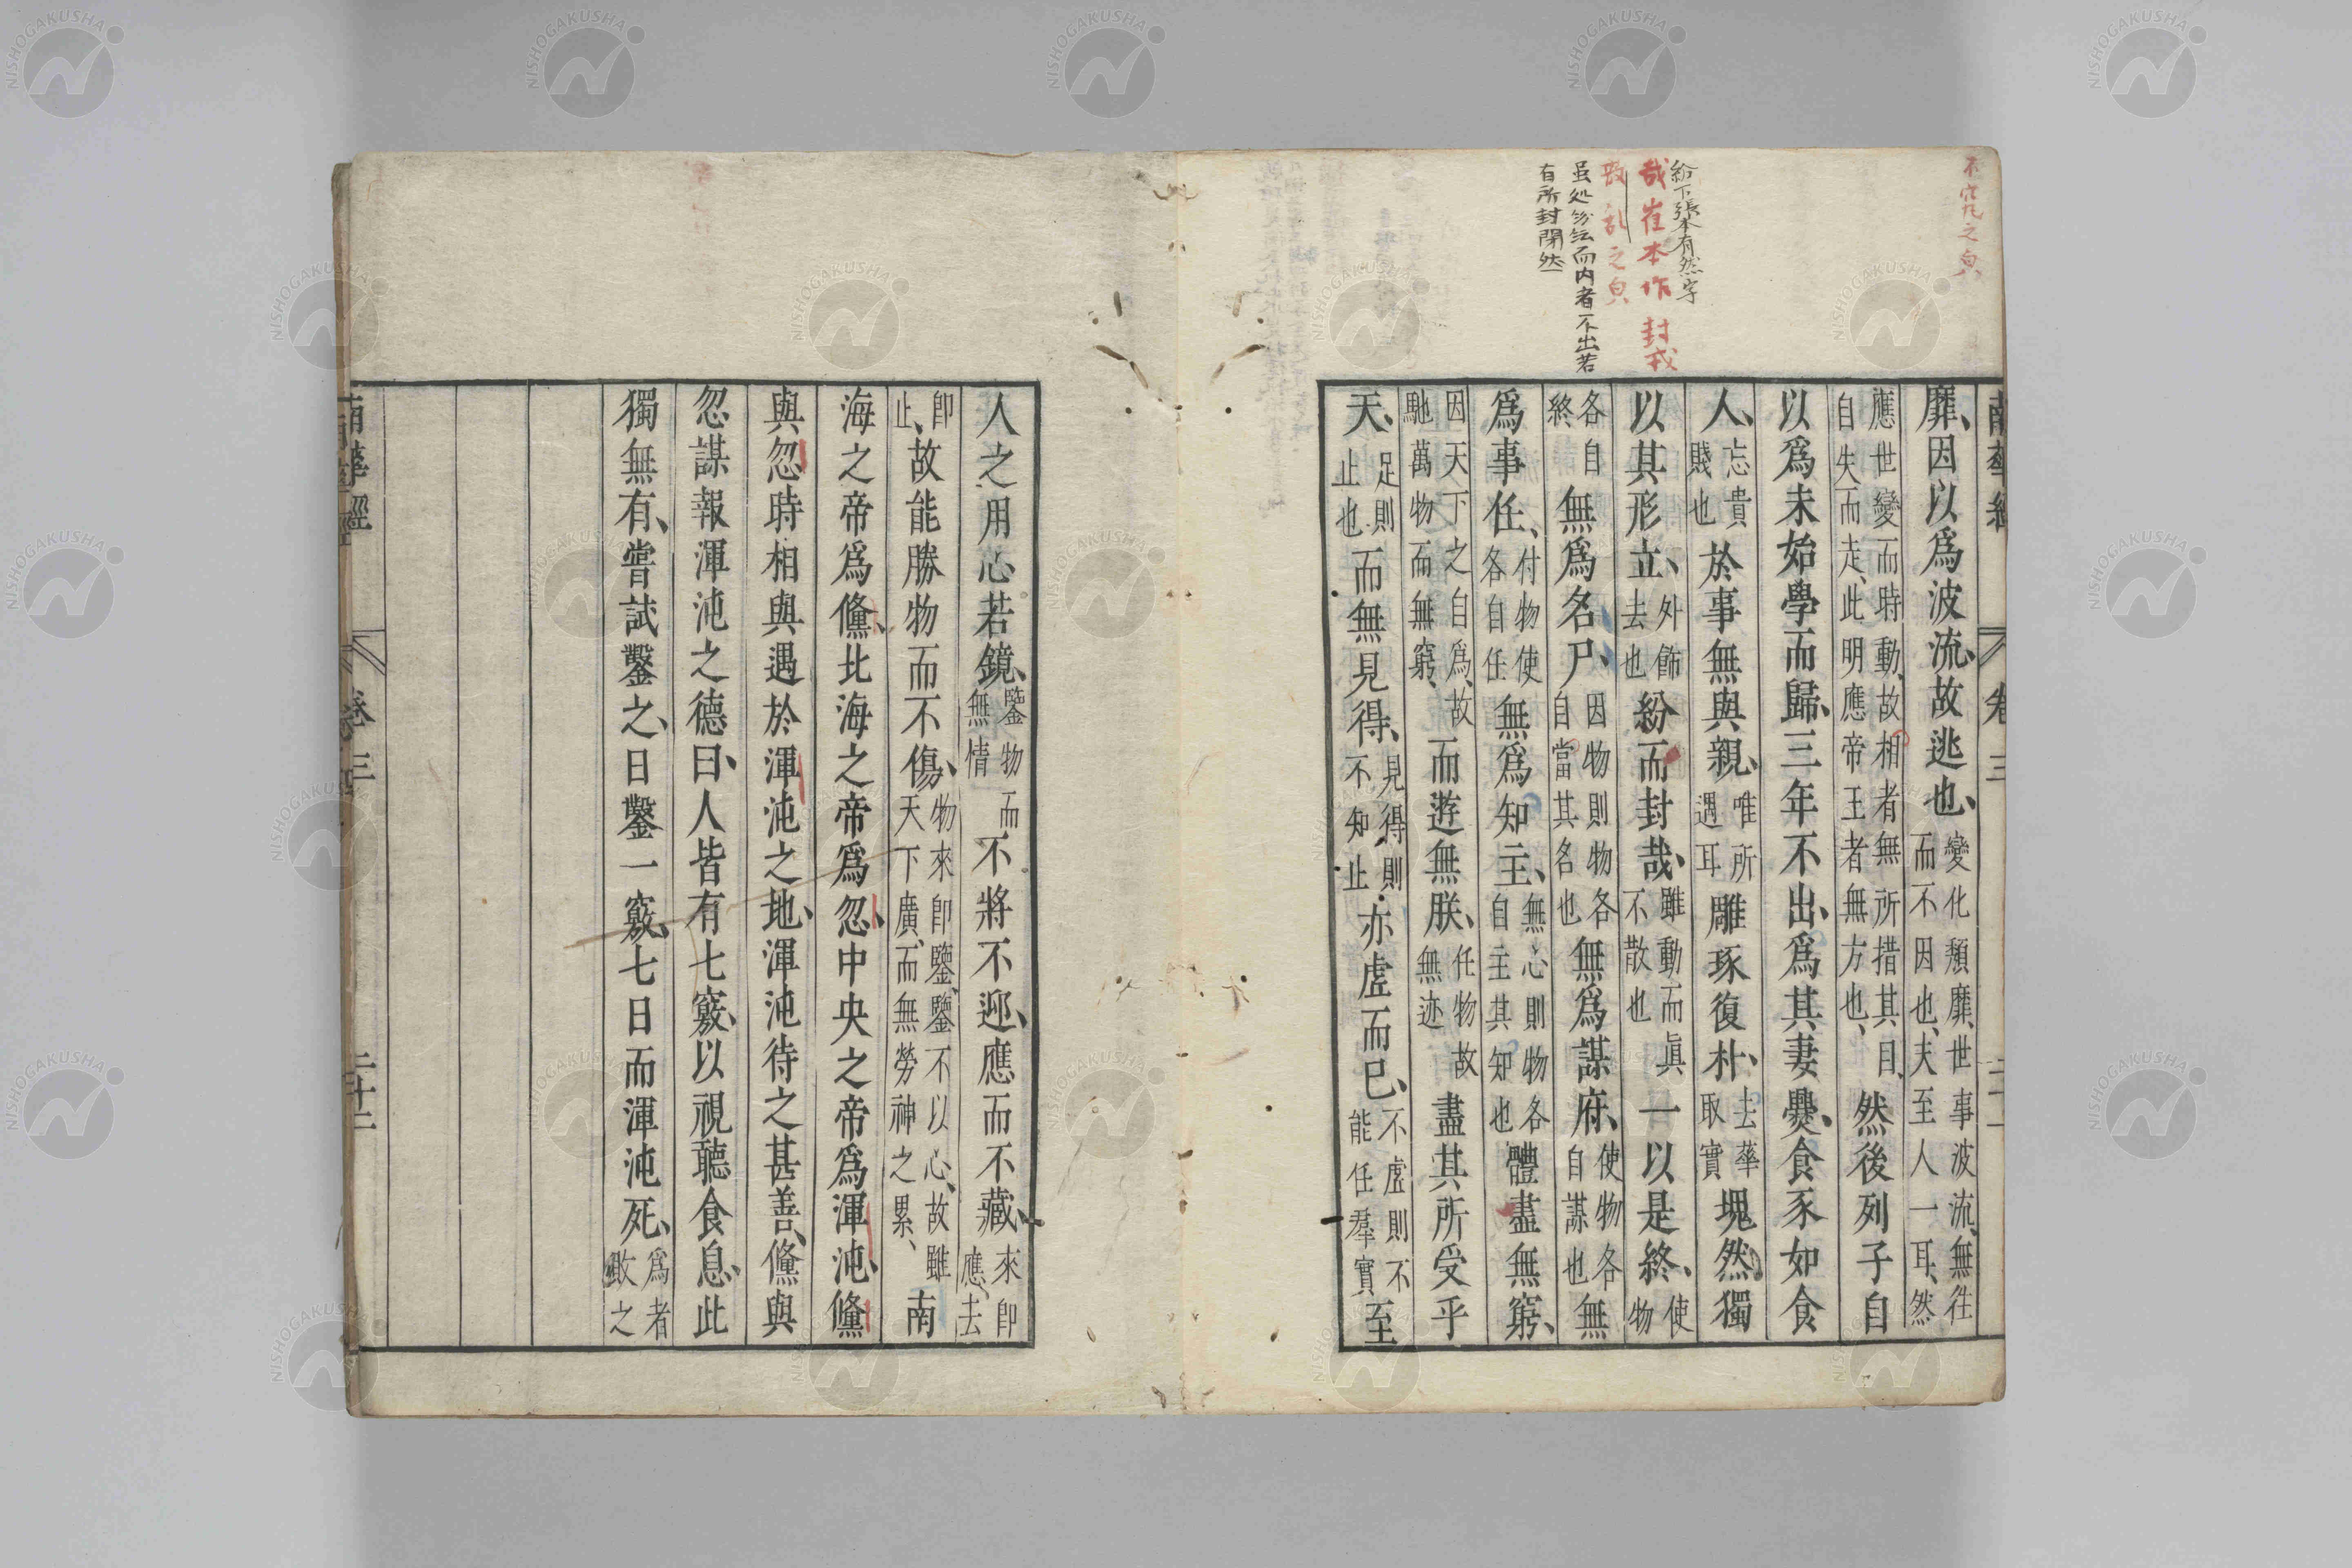 不究之皃
紛下張本有然字
哉崔本作封戎
散乱之皃
虽処紛紜而内者不出若
有所封閉然
南華經 卷三
靡、因以爲波流、故逃也、變化頽靡、世事波流、無往而不因也、夫至人一耳、然
應世變而時動、故相者無所措其目、自失而走、此明應帝王者無方也、然後列子自
以爲未始學而歸、三年不出、爲其妻爨、食豕如食
人、忘貴賤也於事無與親、唯所遇耳雕琢復朴、去華取實塊然獨
以其形立、外飾去也紛而封哉、雖動而眞不散也一以是終、使物
各自終無爲名尸、因物則物各自當其名也無爲謀府、使物各自謀也無
爲事任、付物使各自任無爲知主、無心則物各自主其知也體盡無窮、
因天下之自爲、故馳萬物而無窮、而遊無朕、任物故無迹盡其所受乎
天、足則止也而無見得、見得則不知止亦虛而已、不虛則不能任羣實至
人之用心若鏡、鑒物而無情不將不迎、應而不藏、來即應、去
即止、故能勝物而不傷、物來即鑒、鑒不以心、故雖天下廣、而無勞神之累、南
海之帝爲儵、北海之帝爲忽、中央之帝爲渾沌、儵
與忽時相與遇於渾沌之地、渾沌待之甚善、儵與
忽謀報渾沌之德曰、人皆有七竅、以視聽食息、此
獨無有、嘗試鑿之、日鑿一竅、七日而渾沌死、爲者敗之
南華經 卷三 二十二
NISHOGAKUSHA